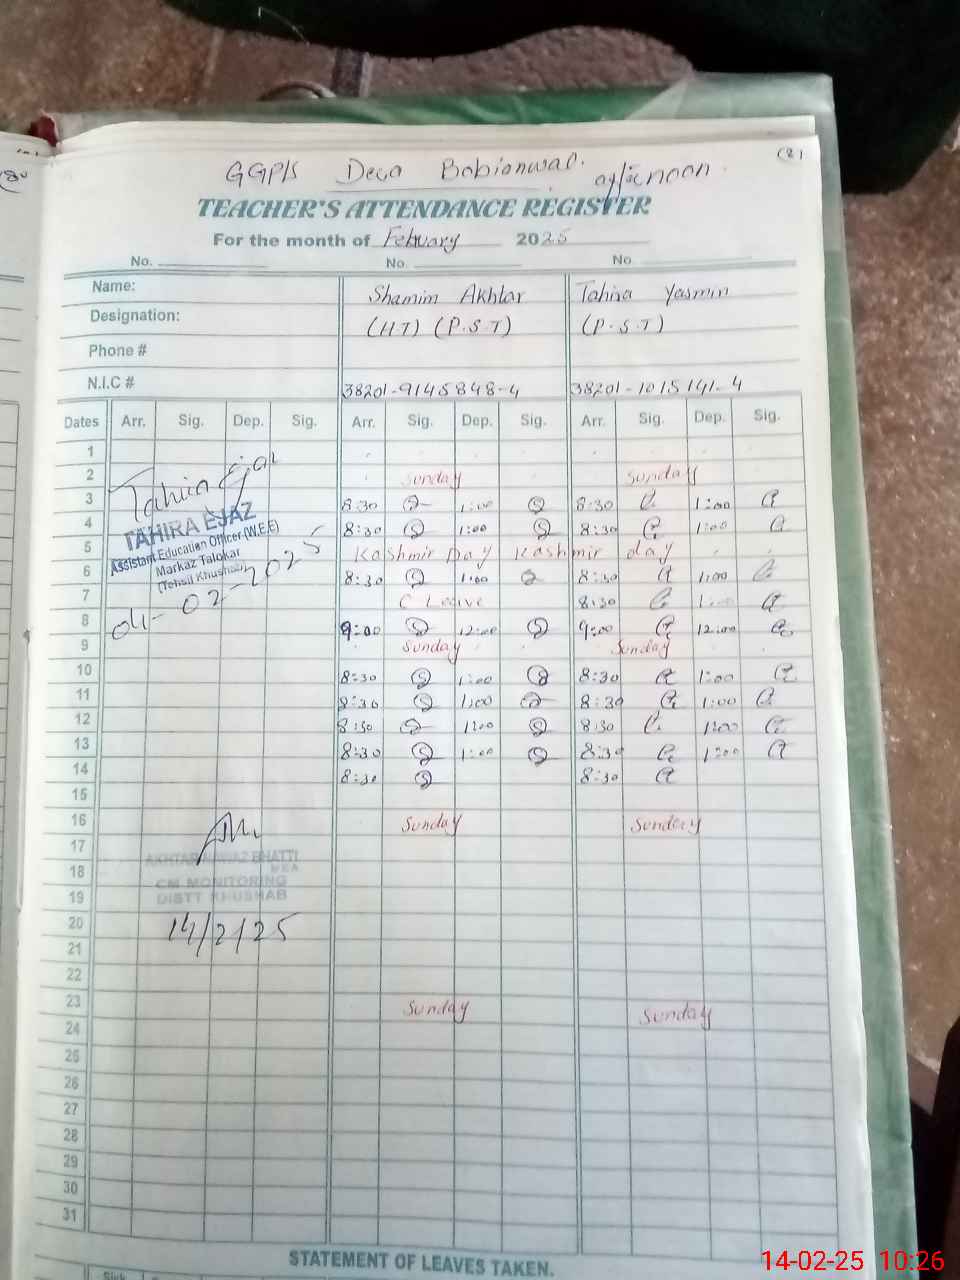 (2)
GGPS Dera Bobianwal. afternoon.
TEACHER'S ATTENDANCE REGISTER
For the month of February 2025
No. No. No
Name: Shamim Akhtar Tahira Yasmin
Designation: (HT) (P.S.T) (P.S.T)
Phone #
N.I.C # 38201-9145848-4 38201-1015141-4
Dates Arr. Sig. Dep. Sig. Arr. Sig. Dep. Sig. Arr. Sig. Dep. Sig.
1
2 Sunday Sunday
3 8:30 1:00 8:30 1:00
4 8:30 1:00 8:30 1:00
5 Kashmir Day Kashmir day
6 8:30 1:00 8:30 1:00
7 C Leave 8:30 1:00
8 9:00 12:00 9:00 12:00
9 Sunday Sunday
10 8:30 1:00 8:30 1:00
11 8:30 1:00 8:30 1:00
12 8:30 1200 8:30 1200
13 8:30 1:00 8:30 1:00
14 8:30 8:30
15
16 Sunday Sunday
17
18
19
20
21
22
23 Sunday Sunday
24
25
26
27
28
29
30
31
Tahira Ejaz
TAHIRA EJAZ
Assistant Education Officer (W.E.E)
Markaz Talokar
(Tehsil Khushab)
04-02-2025
AKHTAR NAWAZ BHATTI
MEA
CM MONITORING
DISTT KHUSHAB
14/2/25
STATEMENT OF LEAVES TAKEN.
Sick
14-02-25 10:26